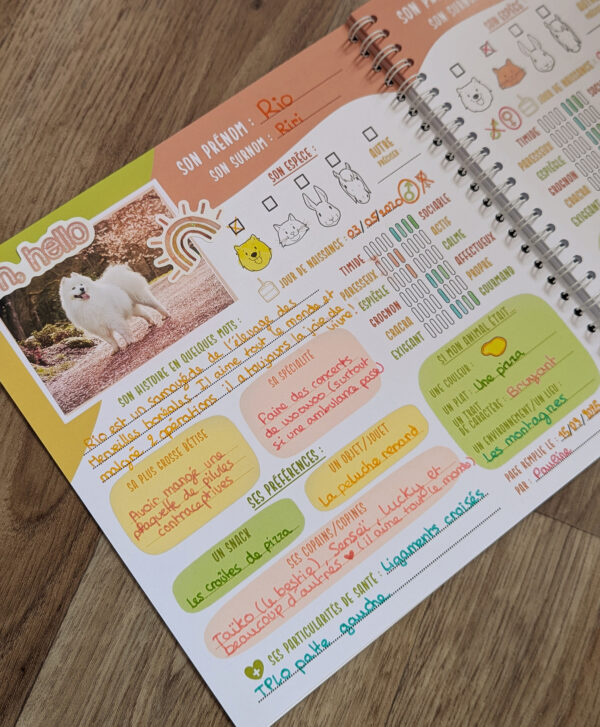 SON PRÉNOM : Rio
SON SURNOM : Riri
SON ESPÈCE :
AUTRE
PRÉCISER :
JOUR DE NAISSANCE : 03/05/2020
TIMIDE SOCIABLE
PARESSEUX ACTIF
ESPIÈGLE CALME
GROGNON AFFECTUEUX
CRACRA PROPRE
EXIGEANT GOURMAND
hello
SON HISTOIRE EN QUELQUES MOTS :
Rio est un samoyède de l'élevage des
Merveilles boréales. Il aime tout le monde et
malgré 2 opérations, il a toujours la joie de
vivre !
SA PLUS GROSSE BÊTISE
Avoir mangé une
plaquette de pilules
contraceptives
SA SPÉCIALITÉ
Faire des concerts
de woowoo (surtout
si une ambulance passe)
SES PRÉFÉRENCES :
UN SNACK
les croûtes de pizza
UN OBJET/JOUET
La peluche renard
SES COPAINS/COPINES
Taïko (le bestie), Senseï, Lucky et
beaucoup d'autres (il aime tout le monde)
SI MON ANIMAL ÉTAIT...
UNE COULEUR :
UN PLAT : Une pizza
UN TRAIT
DE CARACTÈRE : Bruyant
UN ENVIRONNEMENT/UN LIEU :
Les montagnes
PAGE REMPLIE LE :
PAR : Pauline
SES PARTICULARITÉS DE SANTÉ : Ligaments croisés
TPLO patte gauche
SON ESPÈCE
JOUR DE NAISSANCE :
TIMIDE
PARESSEUX
ESPIÈGLE
GROGNON
CRACRA
EXIGEANT